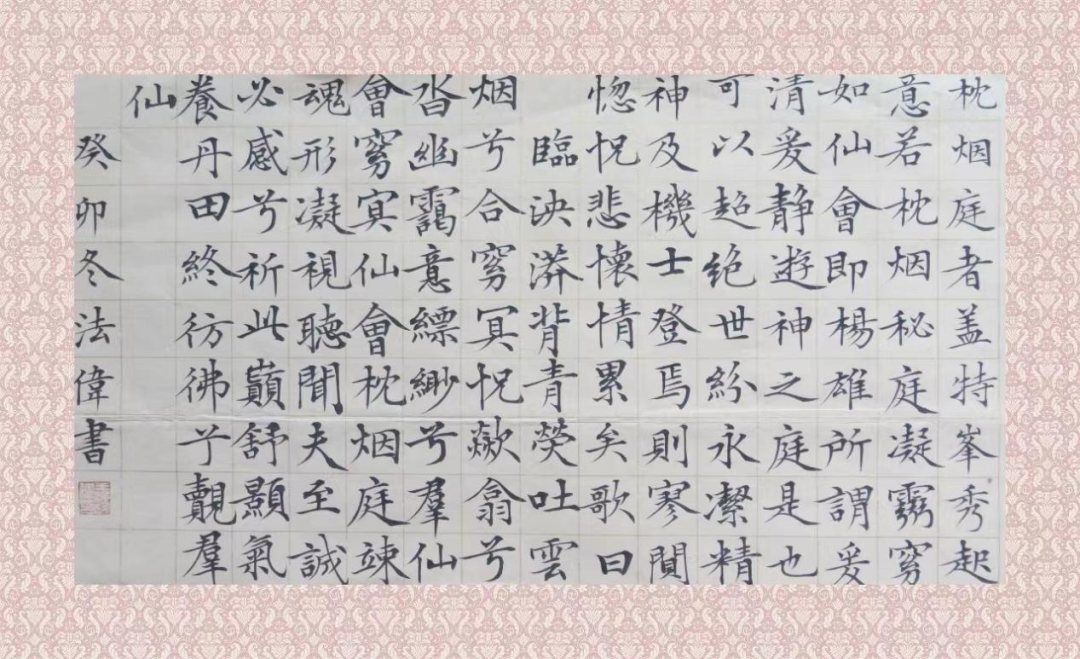 枕烟庭者盖特峯秀起
意若枕烟秘庭凝窮
如仙會即楊雄所謂爰
清爰静遊神之庭是也
可以超绝世紛永潔精
神及機士登焉則寥闃
惚怳悲懷情累矣歌曰
臨泱漭背青熒吐雲
烟兮合窮冥怳歘翕兮
沓幽靄意縹緲兮羣仙
會窮冥仙會枕烟庭竦
魂形凝視聽聞夫至誠
必感兮祈此巔舒顯氣
養丹田終彷彿兮覿羣
仙
癸卯冬法偉書